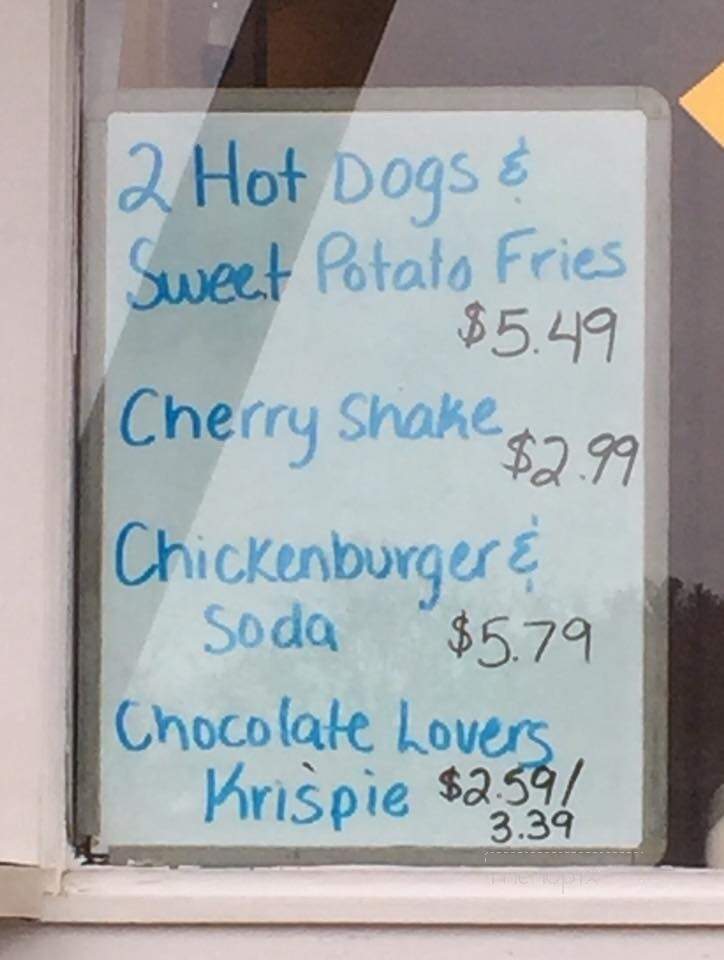 2 Hot Dogs &
Sweet Potato Fries
$5.49
Cherry Shake
$2.99
Chickenburger &
Soda $5.79
Chocolate Lovers
Krispie $2.59/
3.39